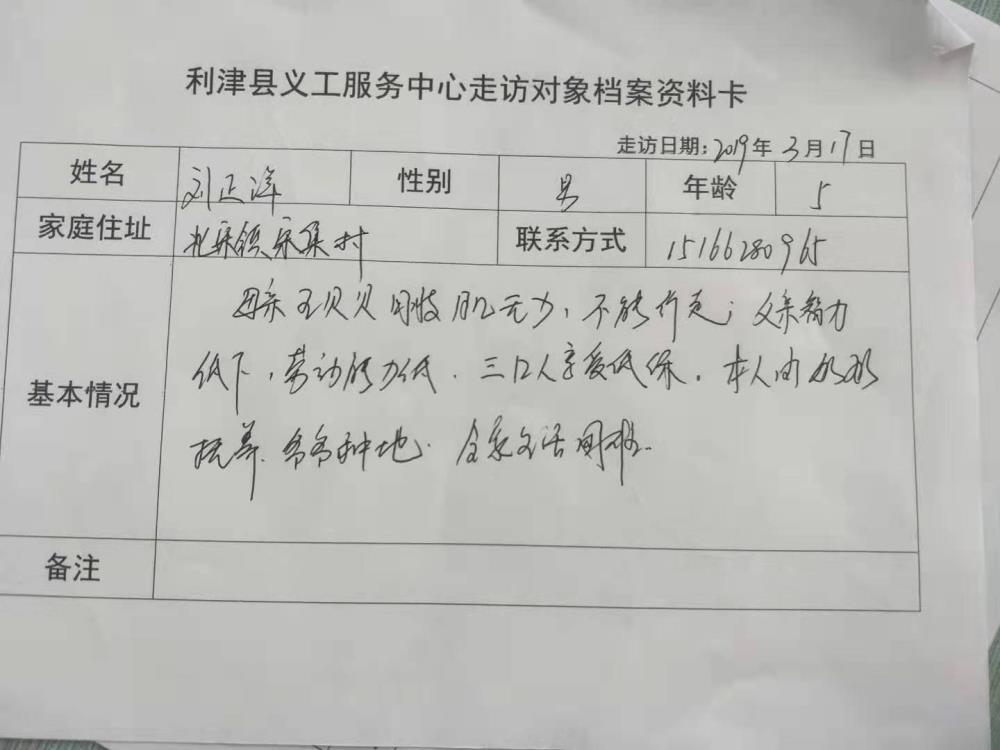 利津县义工服务中心走访对象档案资料卡
走访日期:2019年3月17日
姓名 刘正洋 性别 男 年龄 5
家庭住址 北宋镇宋集村 联系方式 15166280965
母亲王贝贝四肢肌无力,不能行走;父亲智力
基本情况 低下,劳动能力低.三口人享受低保.本人由奶奶
抚养.爷爷种地.全家生活困难.
备注